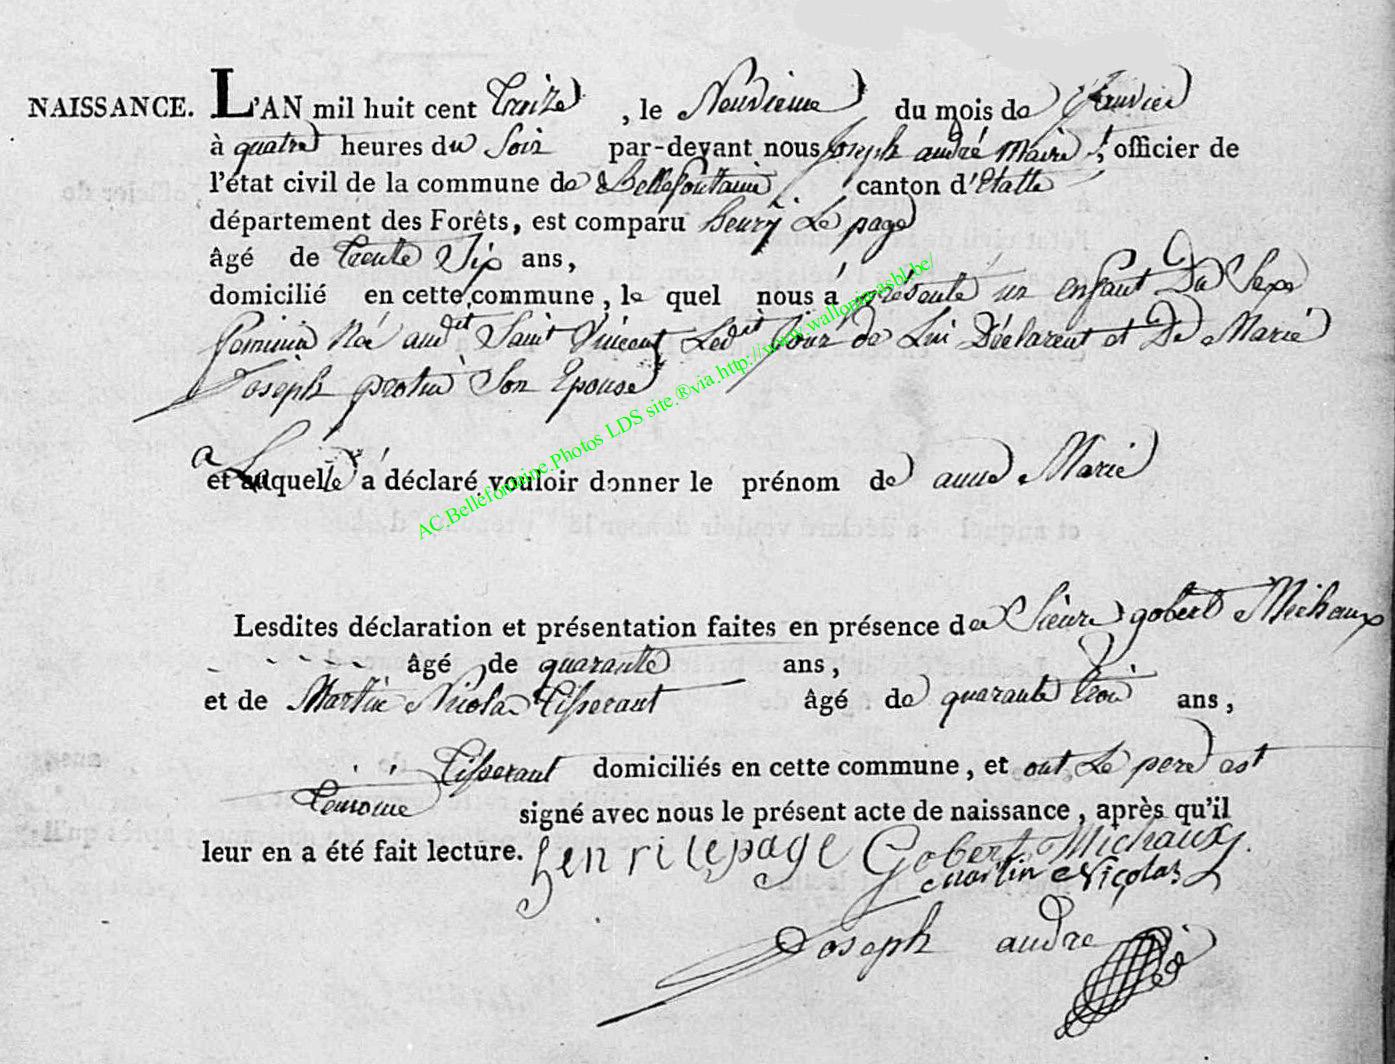 NAISSANCE. L'AN mil huit cent treize, le Neuvieme du mois de Janvier
à quatre heures du Soir par-devant nous Joseph andré Maire, officier de
l'état civil de la commune de Bellefontaine canton d'Etalle
département des Forêts, est comparu henry Le page
âgé de trente Six ans,
domicilié en cette commune, le quel nous á présenté un enfant Du Sexe
feminin Né audit Saint Vincent Ledit jour de Lui Déclarent et De Marie
Joseph protin Son Epouse
et auquelle a á déclaré vouloir donner le prénom de anne Marie
Lesdites déclaration et présentation faites en présence de Sieur gobert Michaux
âgé de quarante ans,
et de Martin Nicolas tisserant âgé de quarante troi ans,
tisserant domiciliés en cette commune, et ont Le pere est
temoine signé avec nous le présent acte de naissance, après qu'il
leur en a été fait lecture. henri lepage Gobert Michaux
martin Nicolas
Joseph andre
AC.Bellefontaine.Photos LDS site.®via.http://www.wallonia-asbl.be/